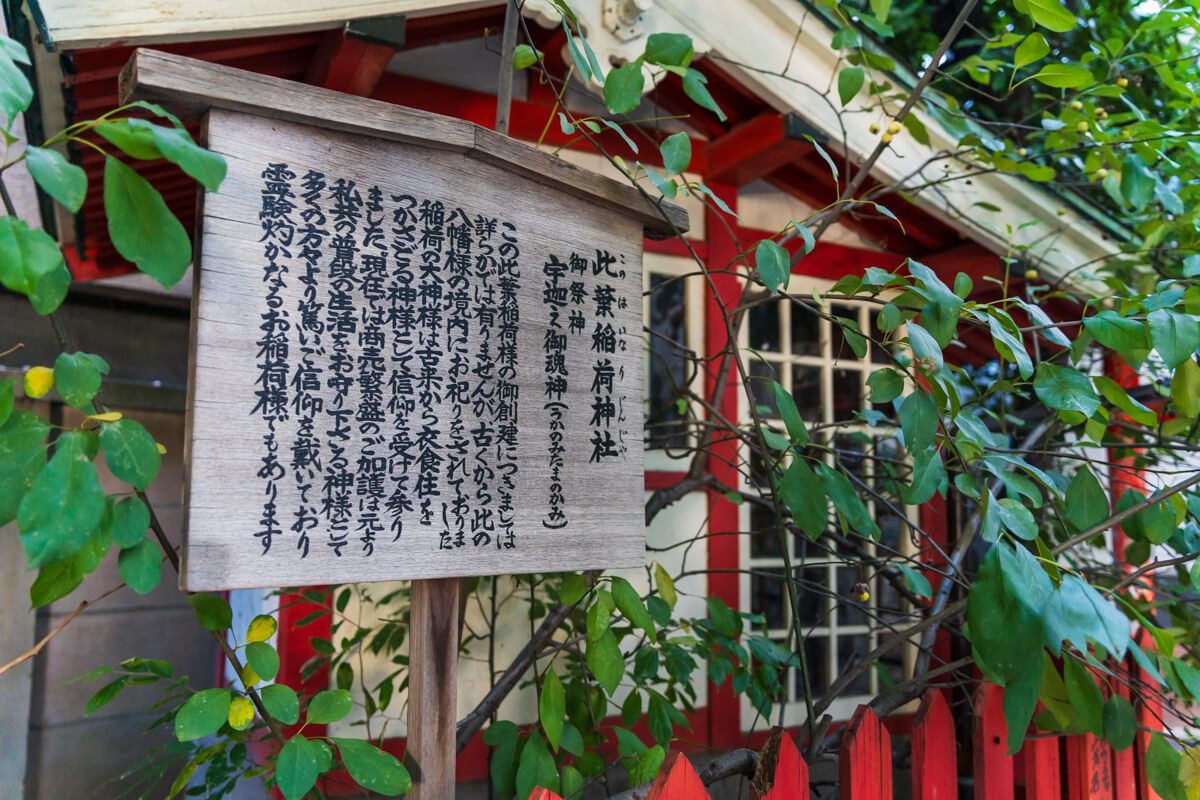 此葉稲荷神社
このはいなりじんじゃ
御祭神
宇迦之御魂神(うかのみたまのかみ)
この此葉稲荷様の御創建につきましては
詳らかでは有りませんが古くから此の
八幡様の境内にお祀りをされておりま
した
稲荷の大神様は古来から衣食住を
つかさどる神様として信仰を受けて参り
ました。現在では商売繁盛のご加護は元より
私共の普段の生活をお守り下さる神様として
多くの方々より篤いご信仰を戴いており
霊験灼かなるお稲荷様でもあります